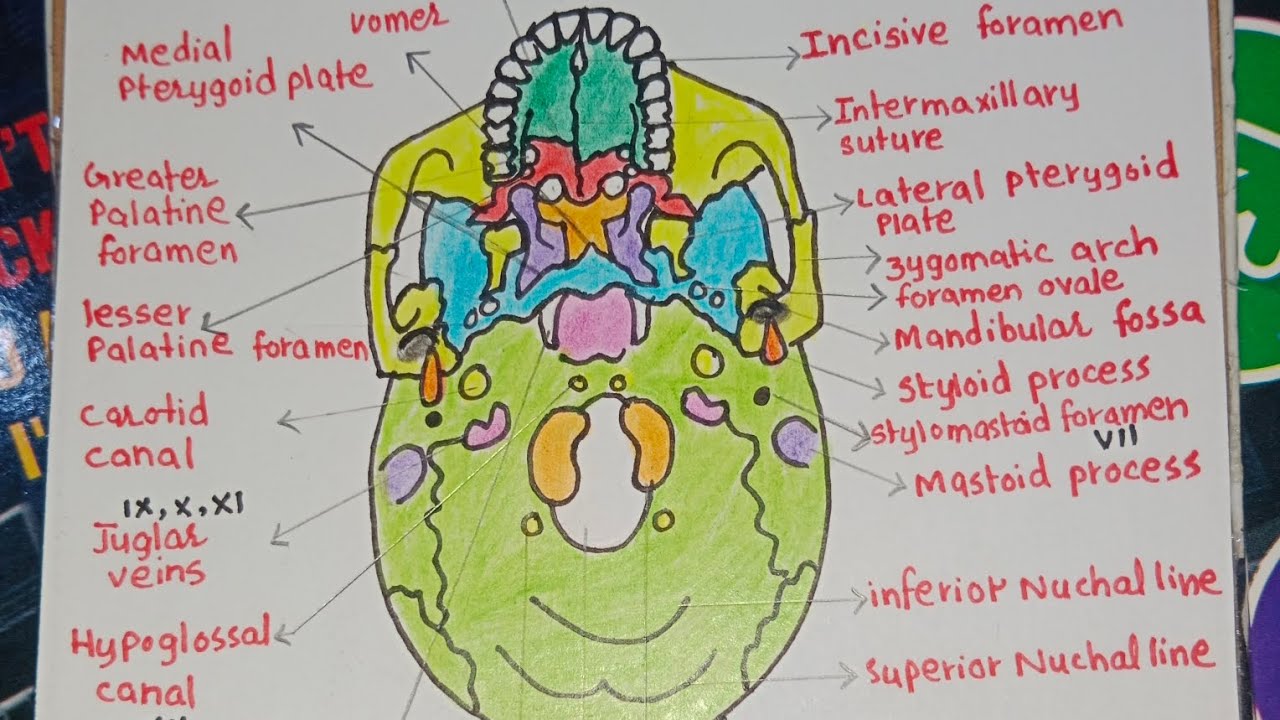 vomer
Medial
Pterygoid plate
Greater
Palatine
foramen
lesser
Palatine foramen
carotid
canal
IX, X, XI
Juglar
veins
Hypoglossal
canal
Incisive foramen
Intermaxillary
suture
Lateral pterygoid
plate
zygomatic arch
foramen ovale
Mandibular fossa
Styloid process
stylomastoid foramen
VII
Mastoid process
inferior Nuchal line
superior Nuchal line